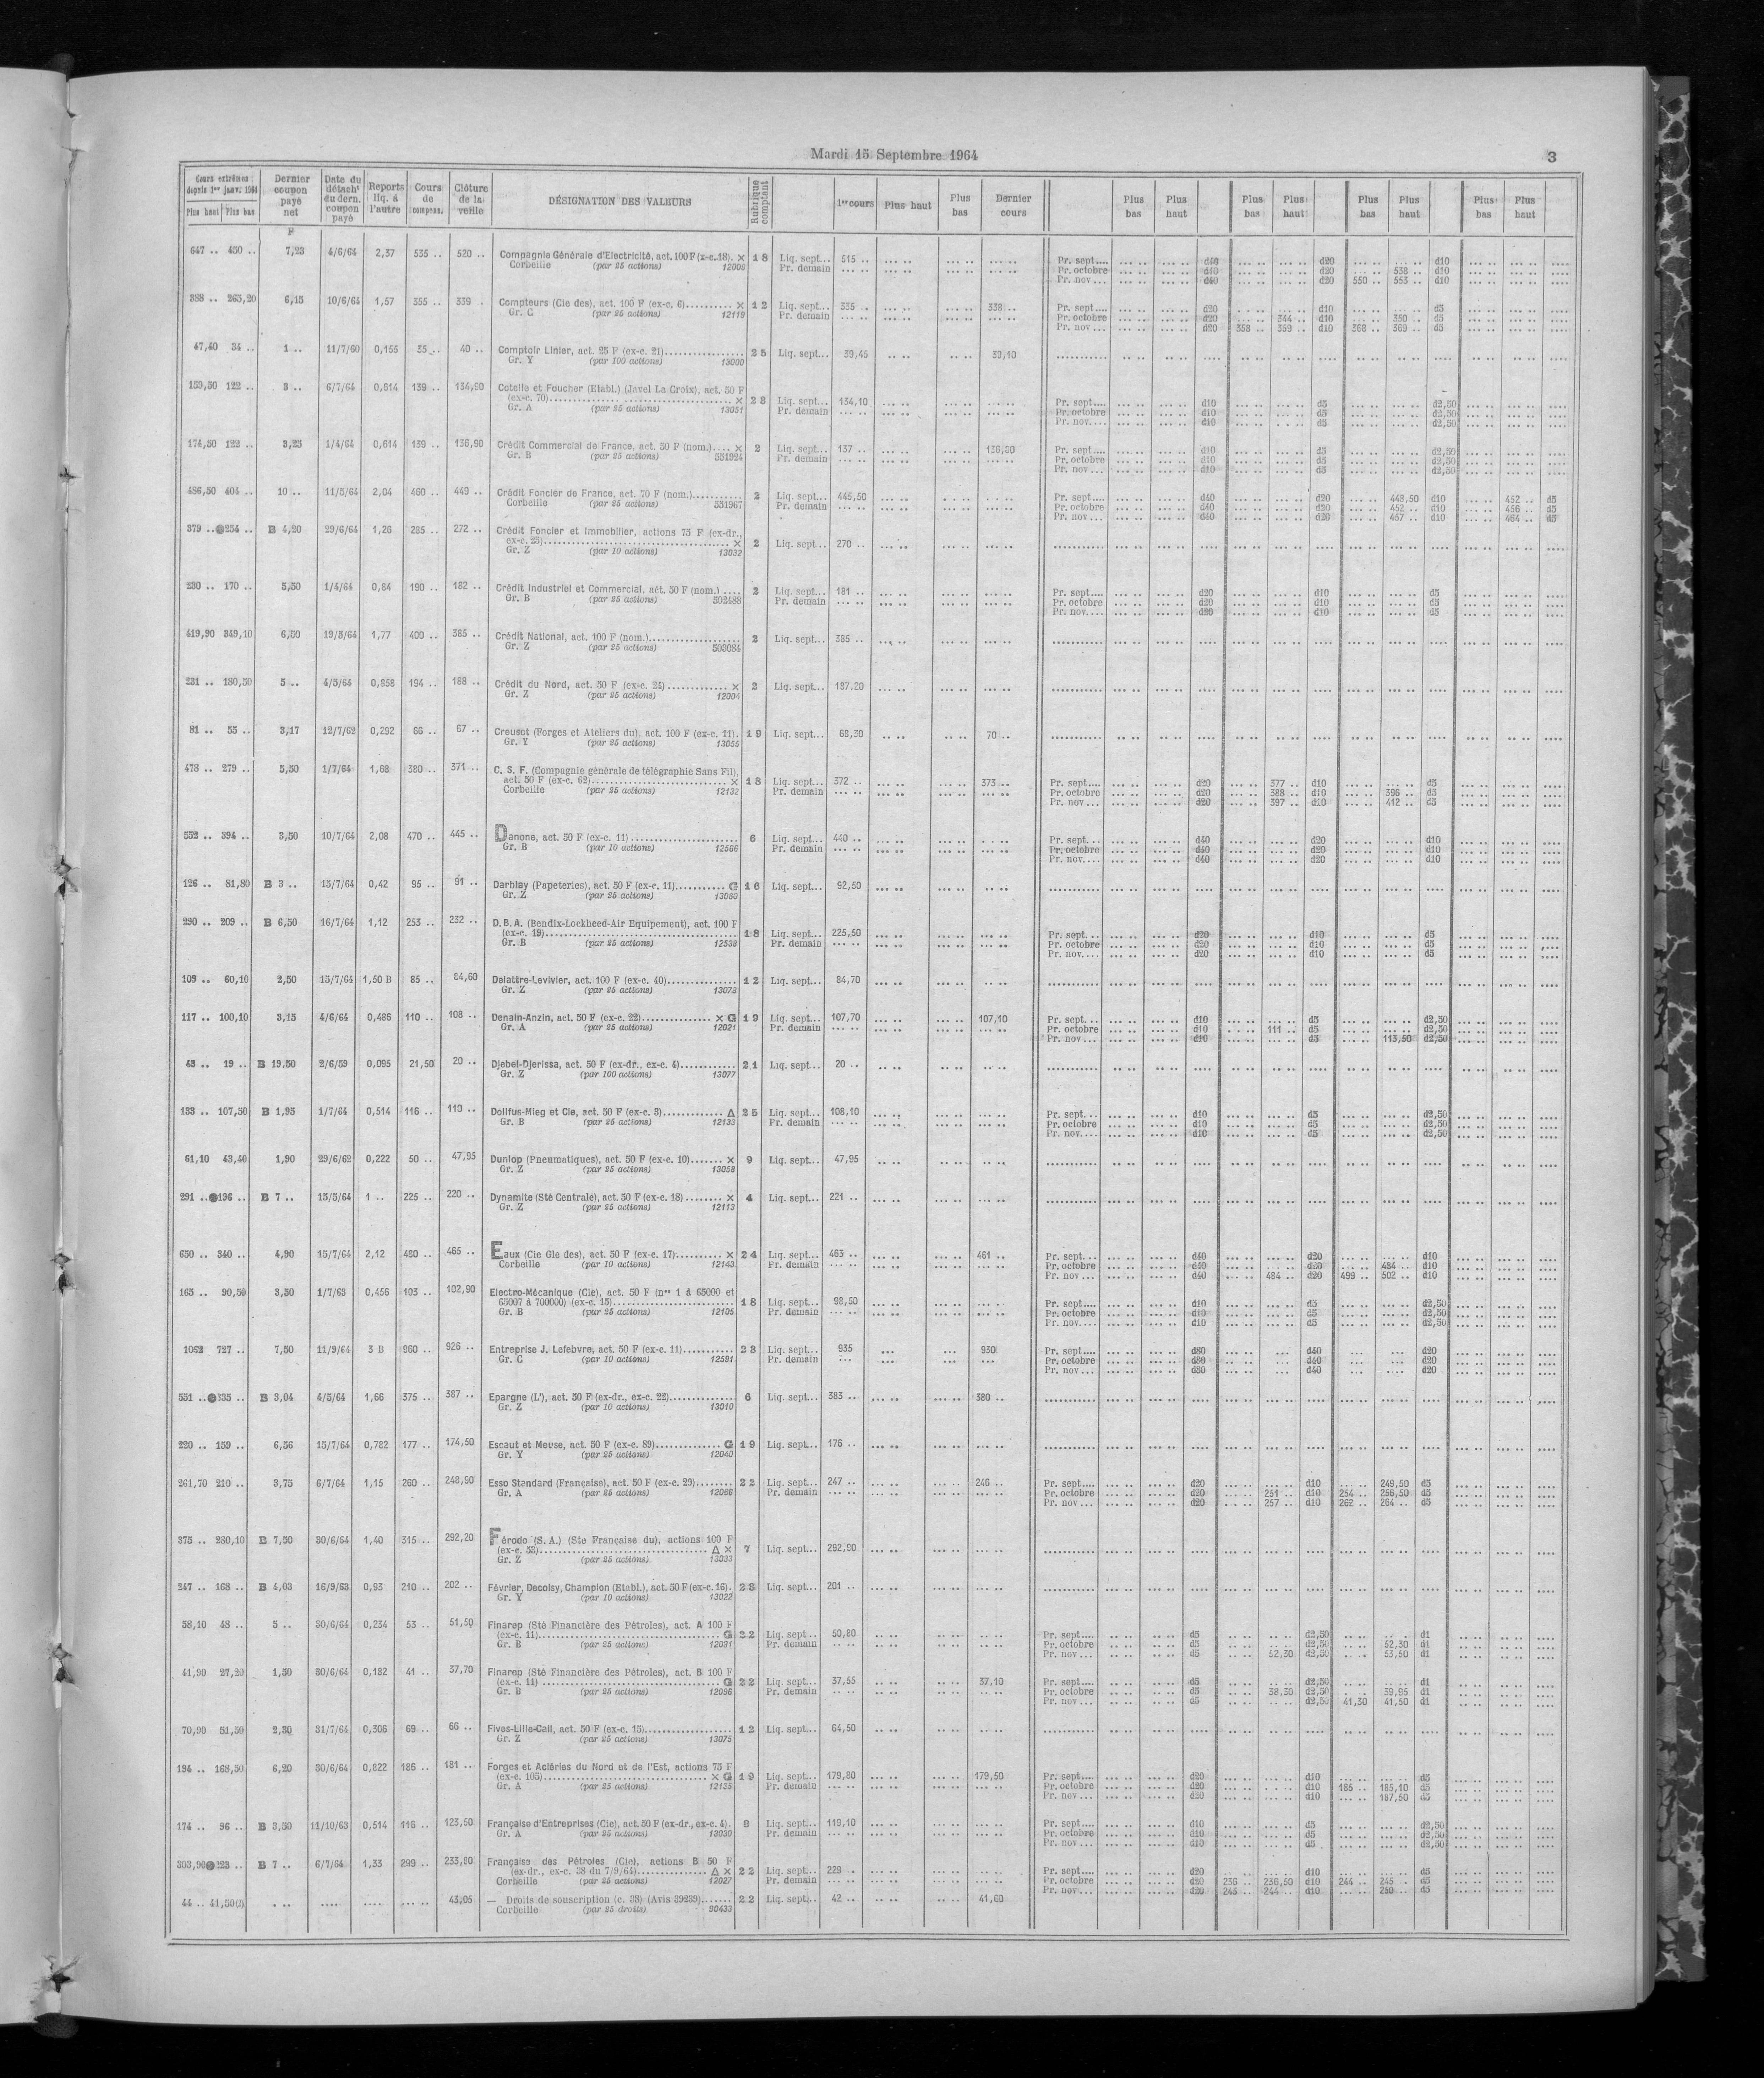 Mardi 15 Septembre 1964
3
Cours extrêmes depuis 1er janv. 1964 Plus haut Plus bas | Dernier coupon payé net | Date du détacht du dern. coupon payé | Reports liq. à l'autre | Cours de compens. | Clôture de la veille | DÉSIGNATION DES VALEURS | Rubrique comptant | 1er cours | Plus haut | Plus bas | Dernier cours | Plus bas | Plus haut | Plus bas | Plus haut | Plus bas | Plus haut | Plus bas | Plus haut
F
647 .. 450 .. 7,23 4/6/64 2,37 535 .. 520 .. Compagnie Générale d'Electricité, act. 100 F (x-c. 18). × 18 Liq. sept... 515 .. Pr. sept.... d40 d20 d10
Corbeille (par 25 actions) 12009 Pr. demain Pr. octobre d40 d20 538 .. d10
Pr. nov... d40 d20 550 .. 553 .. d10
388 .. 265,20 6,15 10/6/64 1,57 355 .. 339 . Compteurs (Cie des), act. 100 F (ex-c. 6).......... × 12 Liq. sept... 335 .. 338 .. Pr. sept.... d20 d10 d5
Gr. C (par 25 actions) 12119 Pr. demain Pr. octobre d20 344 .. d10 350 .. d5
Pr. nov... d20 358 .. 359 .. d10 368 .. 369 .. d5
47,40 34 .. 1 .. 11/7/60 0,155 35 .. 40 .. Comptoir Linier, act. 25 F (ex-c. 21)................ 25 Liq. sept... 39,45 39,10
Gr. Y (par 100 actions) 13000
153,50 122 .. 3 .. 6/7/64 0,614 139 .. 134,90 Cotelle et Foucher (Etabl.) (Javel La Croix), act. 50 F
(ex-c. 70)................ × 28 Liq. sept... 134,10 Pr. sept.... d10 d5 d2,50
Gr. A (par 25 actions) 13051 Pr. demain Pr. octobre d10 d5 d2,50
Pr. nov.... d10 d5 d2,50
174,50 122 .. 3,25 1/4/64 0,614 139 .. 136,90 Crédit Commercial de France, act. 50 F (nom.).... × 2 Liq. sept... 137 .. 136,80 Pr. sept.... d10 d5 d2,50
Gr. B (par 25 actions) 551924 Pr. demain Pr. octobre d10 d5 d2,50
Pr. nov... d10 d5 d2,50
486,50 404 .. 10 .. 11/5/64 2,04 460 .. 449 .. Crédit Foncier de France, act. 70 F (nom.)........... 2 Liq. sept... 445,50 Pr. sept.... d40 d20 448,50 d10 452 .. d5
Corbeille (par 25 actions) 551967 Pr. demain Pr. octobre d40 d20 452 .. d10 456 .. d5
Pr. nov... d40 d20 457 .. d10 464 .. d5
379 .. 254 .. B 4,20 29/6/64 1,26 285 .. 272 .. Crédit Foncier et Immobilier, actions 75 F (ex-dr.,
ex-c. 25)................ × 2 Liq. sept... 270 ..
Gr. Z (par 10 actions) 13032
230 .. 170 .. 5,50 1/4/64 0,84 190 .. 182 .. Crédit Industriel et Commercial, act. 50 F (nom.) .... 2 Liq. sept... 181 .. Pr. sept.... d20 d10 d5
Gr. B (par 25 actions) 502488 Pr. demain Pr. octobre d20 d10 d5
Pr. nov.... d20 d10 d5
419,90 349,10 6,80 19/5/64 1,77 400 .. 385 .. Crédit National, act. 100 F (nom.)................... 2 Liq. sept... 385 ..
Gr. Z (par 25 actions) 503084
231 .. 180,50 5 .. 4/5/64 0,858 194 .. 188 .. Crédit du Nord, act. 50 F (ex-c. 24)............. × 2 Liq. sept... 187,20
Gr. Z (par 25 actions) 12004
81 .. 55 .. 3,17 12/7/62 0,292 66 .. 67 .. Creusot (Forges et Ateliers du), act. 100 F (ex-c. 11). 19 Liq. sept... 68,50 70 ..
Gr. Y (par 25 actions) 13055
478 .. 279 .. 5,50 1/7/64 1,68 380 .. 371 .. C. S. F. (Compagnie générale de télégraphie Sans Fil),
act. 50 F (ex-c. 62)................ × 18 Liq. sept... 372 .. 373 .. Pr. sept.... d20 377 .. d10 d5
Corbeille (par 25 actions) 12132 Pr. demain Pr. octobre d20 388 .. d10 396 .. d5
Pr. nov... d20 397 .. d10 412 .. d5
552 .. 394 .. 3,50 10/7/64 2,08 470 .. 445 .. Danone, act. 50 F (ex-c. 11)................ 6 Liq. sept... 440 .. Pr. sept... d40 d20 d10
Gr. B (par 10 actions) 12566 Pr. demain Pr. octobre d40 d20 d10
Pr. nov.... d40 d20 d10
126 .. 81,80 B 3 .. 15/7/64 0,42 95 .. 91 .. Darblay (Papeteries), act. 50 F (ex-c. 11)........... G 16 Liq. sept... 92,50
Gr. Z (par 25 actions) 13060
290 .. 209 .. B 6,50 16/7/64 1,12 253 .. 232 .. D. B. A. (Bendix-Lockheed-Air Equipement), act. 100 F
(ex-c. 19)................ 18 Liq. sept... 225,50 Pr. sept... d20 d10 d5
Gr. B (par 25 actions) 12539 Pr. demain Pr. octobre d20 d10 d5
Pr. nov.... d20 d10 d5
109 .. 60,10 2,50 15/7/64 1,50 B 85 .. 84,60 Delattre-Levivier, act. 100 F (ex-c. 40)............... 12 Liq. sept... 84,70
Gr. Z (par 25 actions) 13073
117 .. 100,10 3,15 4/6/64 0,486 110 .. 108 .. Denain-Anzin, act. 50 F (ex-c. 22)............... × G 19 Liq. sept... 107,70 107,10 Pr. sept... d10 d5 d2,50
Gr. A (par 25 actions) 12021 Pr. demain Pr. octobre d10 111 .. d5 d2,50
Pr. nov... d10 d5 113,50 d2,50
43 .. 19 .. B 19,50 2/6/59 0,095 21,50 20 .. Djebel-Djerissa, act. 50 F (ex-dr., ex-c. 4)............ 21 Liq. sept... 20 ..
Gr. Z (par 100 actions) 13077
153 .. 107,50 B 1,95 1/7/64 0,514 116 .. 110 .. Dollfus-Mieg et Cie, act. 50 F (ex-c. 3)............. Δ 25 Liq. sept... 108,10 Pr. sept... d10 d5 d2,50
Gr. B (par 25 actions) 12133 Pr. demain Pr. octobre d10 d5 d2,50
Pr. nov.... d10 d5 d2,50
61,10 43,40 1,90 29/6/62 0,222 50 .. 47,95 Dunlop (Pneumatiques), act. 50 F (ex-c. 10)....... × 9 Liq. sept... 47,95
Gr. Z (par 25 actions) 13058
291 .. 196 .. B 7 .. 15/5/64 1 .. 225 .. 220 .. Dynamite (Sté Centrale), act. 50 F (ex-c. 18) ........ × 4 Liq. sept... 221 ..
Gr. Z (par 25 actions) 12113
650 .. 340 .. 4,90 15/7/64 2,12 480 .. 465 .. Eaux (Cie Gle des), act. 50 F (ex-c. 17).......... × 24 Liq. sept... 463 .. 461 .. Pr. sept... d40 d20 d10
Corbeille (par 10 actions) 12143 Pr. demain Pr. octobre d40 d20 484 .. d10
Pr. nov... d40 484 .. d20 499 .. 502 .. d10
165 .. 90,50 3,50 1/7/63 0,456 103 .. 102,90 Electro-Mécanique (Cie), act. 50 F (nos 1 à 65000 et
65007 à 700000) (ex-c. 15)................ 18 Liq. sept... 98,50 Pr. sept.... d10 d5 d2,50
Gr. B (par 25 actions) 12105 Pr. demain Pr. octobre d10 d5 d2,50
Pr. nov.... d10 d5 d2,50
1062 727 .. 7,50 11/9/64 3 B 960 .. 926 .. Entreprise J. Lefebvre, act. 50 F (ex-c. 11)........... 23 Liq. sept... 935 930 Pr. sept.... d80 d40 d20
Gr. C (par 10 actions) 12581 Pr. demain Pr. octobre d80 d40 d20
Pr. nov... d80 d40 d20
551 .. 335 .. B 3,04 4/5/64 1,66 375 .. 387 .. Epargne (L'), act. 50 F (ex-dr., ex-c. 22).............. 6 Liq. sept... 383 .. 380 ..
Gr. Z (par 10 actions) 13010
220 .. 159 .. 6,56 15/7/64 0,782 177 .. 174,50 Escaut et Meuse, act. 50 F (ex-c. 89).............. G 19 Liq. sept... 176 ..
Gr. Y (par 25 actions) 12040
261,70 210 .. 3,75 6/7/64 1,15 260 .. 248,90 Esso Standard (Française), act. 50 F (ex-c. 29)........ 22 Liq. sept... 247 .. 246 .. Pr. sept.... d20 d10 249,50 d5
Gr. A (par 25 actions) 12086 Pr. demain Pr. octobre d20 251 .. d10 254 .. 256,50 d5
Pr. nov... d20 257 .. d10 262 .. 264 .. d5
375 .. 280,10 B 7,50 30/6/64 1,40 315 .. 292,20 Férodo (S. A.) (Sté Française du), actions 100 F
(ex-c. 53)................ Δ × 7 Liq. sept... 292,90
Gr. Z (par 25 actions) 13033
247 .. 168 .. B 4,03 16/9/63 0,93 210 .. 202 .. Février, Decoisy, Champion (Etabl.), act. 50 F (ex-c. 16). 28 Liq. sept... 201 ..
Gr. Y (par 10 actions) 13022
58,10 48 .. 5 .. 30/6/64 0,234 53 .. 51,50 Finarep (Sté Financière des Pétroles), act. A 100 F
(ex-c. 11)................ G 22 Liq. sept... 50,80 Pr. sept.... d5 d2,50 d1
Gr. B (par 25 actions) 12031 Pr. demain Pr. octobre d5 d2,50 52,30 d1
Pr. nov... d5 52,30 d2,50 53,50 d1
41,90 27,20 1,50 30/6/64 0,182 41 .. 37,70 Finarep (Sté Financière des Pétroles), act. B 100 F
(ex-c. 11)................ G 22 Liq. sept... 37,55 37,10 Pr. sept.... d5 d2,50 d1
Gr. B (par 25 actions) 12096 Pr. demain Pr. octobre d5 38,50 d2,50 39,95 d1
Pr. nov... d5 d2,50 41,30 41,50 d1
70,90 51,50 2,30 31/7/64 0,306 69 .. 66 .. Fives-Lille-Cail, act. 50 F (ex-c. 15)................ 12 Liq. sept... 64,50
Gr. Z (par 25 actions) 13075
194 .. 168,50 6,20 30/6/64 0,822 186 .. 181 .. Forges et Aciéries du Nord et de l'Est, actions 75 F
(ex-c. 103)................ × G 19 Liq. sept... 179,80 179,50 Pr. sept.... d20 d10 d5
Gr. A (par 25 actions) 12125 Pr. demain Pr. octobre d20 d10 185 .. 185,10 d5
Pr. nov... d20 d10 187,50 d5
174 .. 96 .. B 3,50 11/10/63 0,514 116 .. 123,50 Française d'Entreprises (Cie), act. 50 F (ex-dr., ex-c. 4). 8 Liq. sept... 119,10 Pr. sept.... d10 d5 d2,50
Gr. A (par 25 actions) 13030 Pr. demain Pr. octobre d10 d5 d2,50
Pr. nov... d10 d5 d2,50
303,90 223 .. B 7 .. 6/7/64 1,33 299 .. 233,80 Française des Pétroles (Cie), actions B 50 F
(ex-dr., ex-c. 38 du 7/9/64)............ Δ × 22 Liq. sept... 229 .. Pr. sept.... d20 d10 d5
Corbeille (par 25 actions) 12027 Pr. demain Pr. octobre d20 236 .. 236,50 d10 244 .. 245 .. d5
Pr. nov... d20 243 .. 244 .. d10 250 .. d5
44 .. 41,50(1) 43,05 — Droits de souscription (c. 38) (Avis 39239)....... 22 Liq. sept... 42 .. 41,60
Corbeille (par 25 droits) 90433